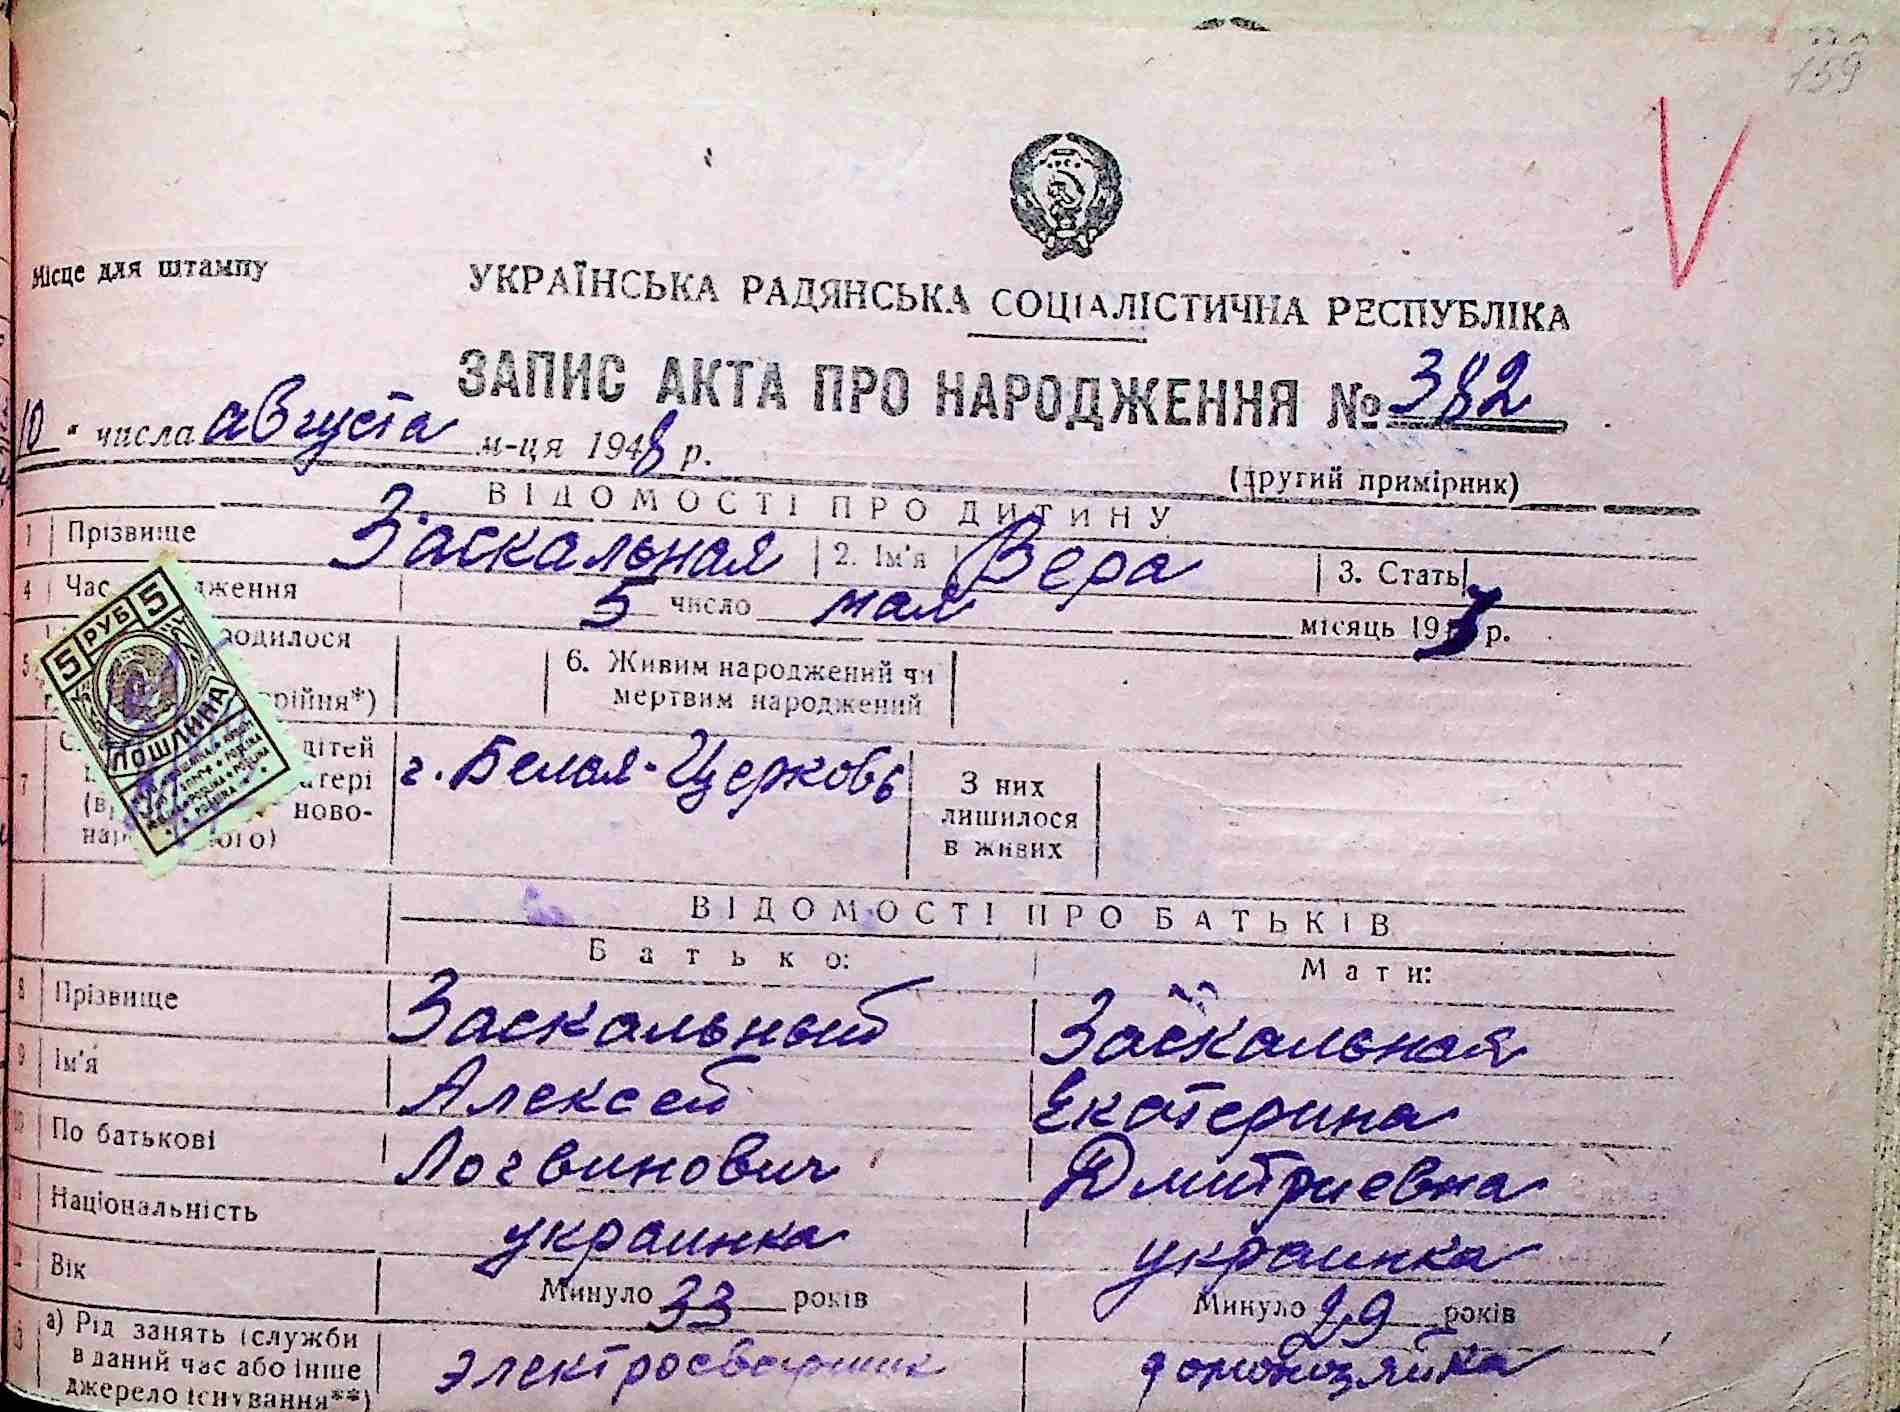 159
Місце для штампу
УКРАЇНСЬКА РАДЯНСЬКА СОЦІАЛІСТИЧНА РЕСПУБЛІКА
ЗАПИС АКТА ПРО НАРОДЖЕННЯ № 382
10 " числа августа м-ця 1948 р.
(другий примірник)
ВІДОМОСТІ ПРО ДИТИНУ
1 Прізвище Заскальная 2. Ім'я Вера 3. Стать
4 Час дження 5 число мая місяць 19 р.
5 родилося
рійня*)
6. Живим народжений чи
мертвим народжений
7 дітей
тері
ново-
ного)
г. Белая-Церковь
З них
лишилося
в живих
5 РУБ 5
ПОШЛИНА
ВІДОМОСТІ ПРО БАТЬКІВ
Батько: Мати:
8 Прізвище Заскальный Заскальная
9 Ім'я Алексей Екатерина
10 По батькові Логвинович Дмитриевна
Національність украинка украинка
Вік Минуло 33 років Минуло 29 років
а) Рід занять (служби
в даний час або інше
джерело існування**)
электросварщик домохозяйка